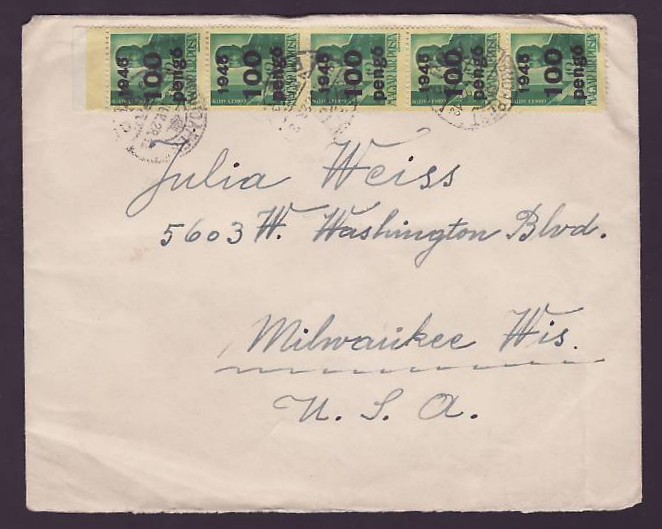 1946 100 pengő 1946 100 pengő 1946 100 pengő 1946 100 pengő 1946 100 pengő
Julia Weiss
5603 W. Washington Blvd.
Milwaukee Wis.
U. S. A.